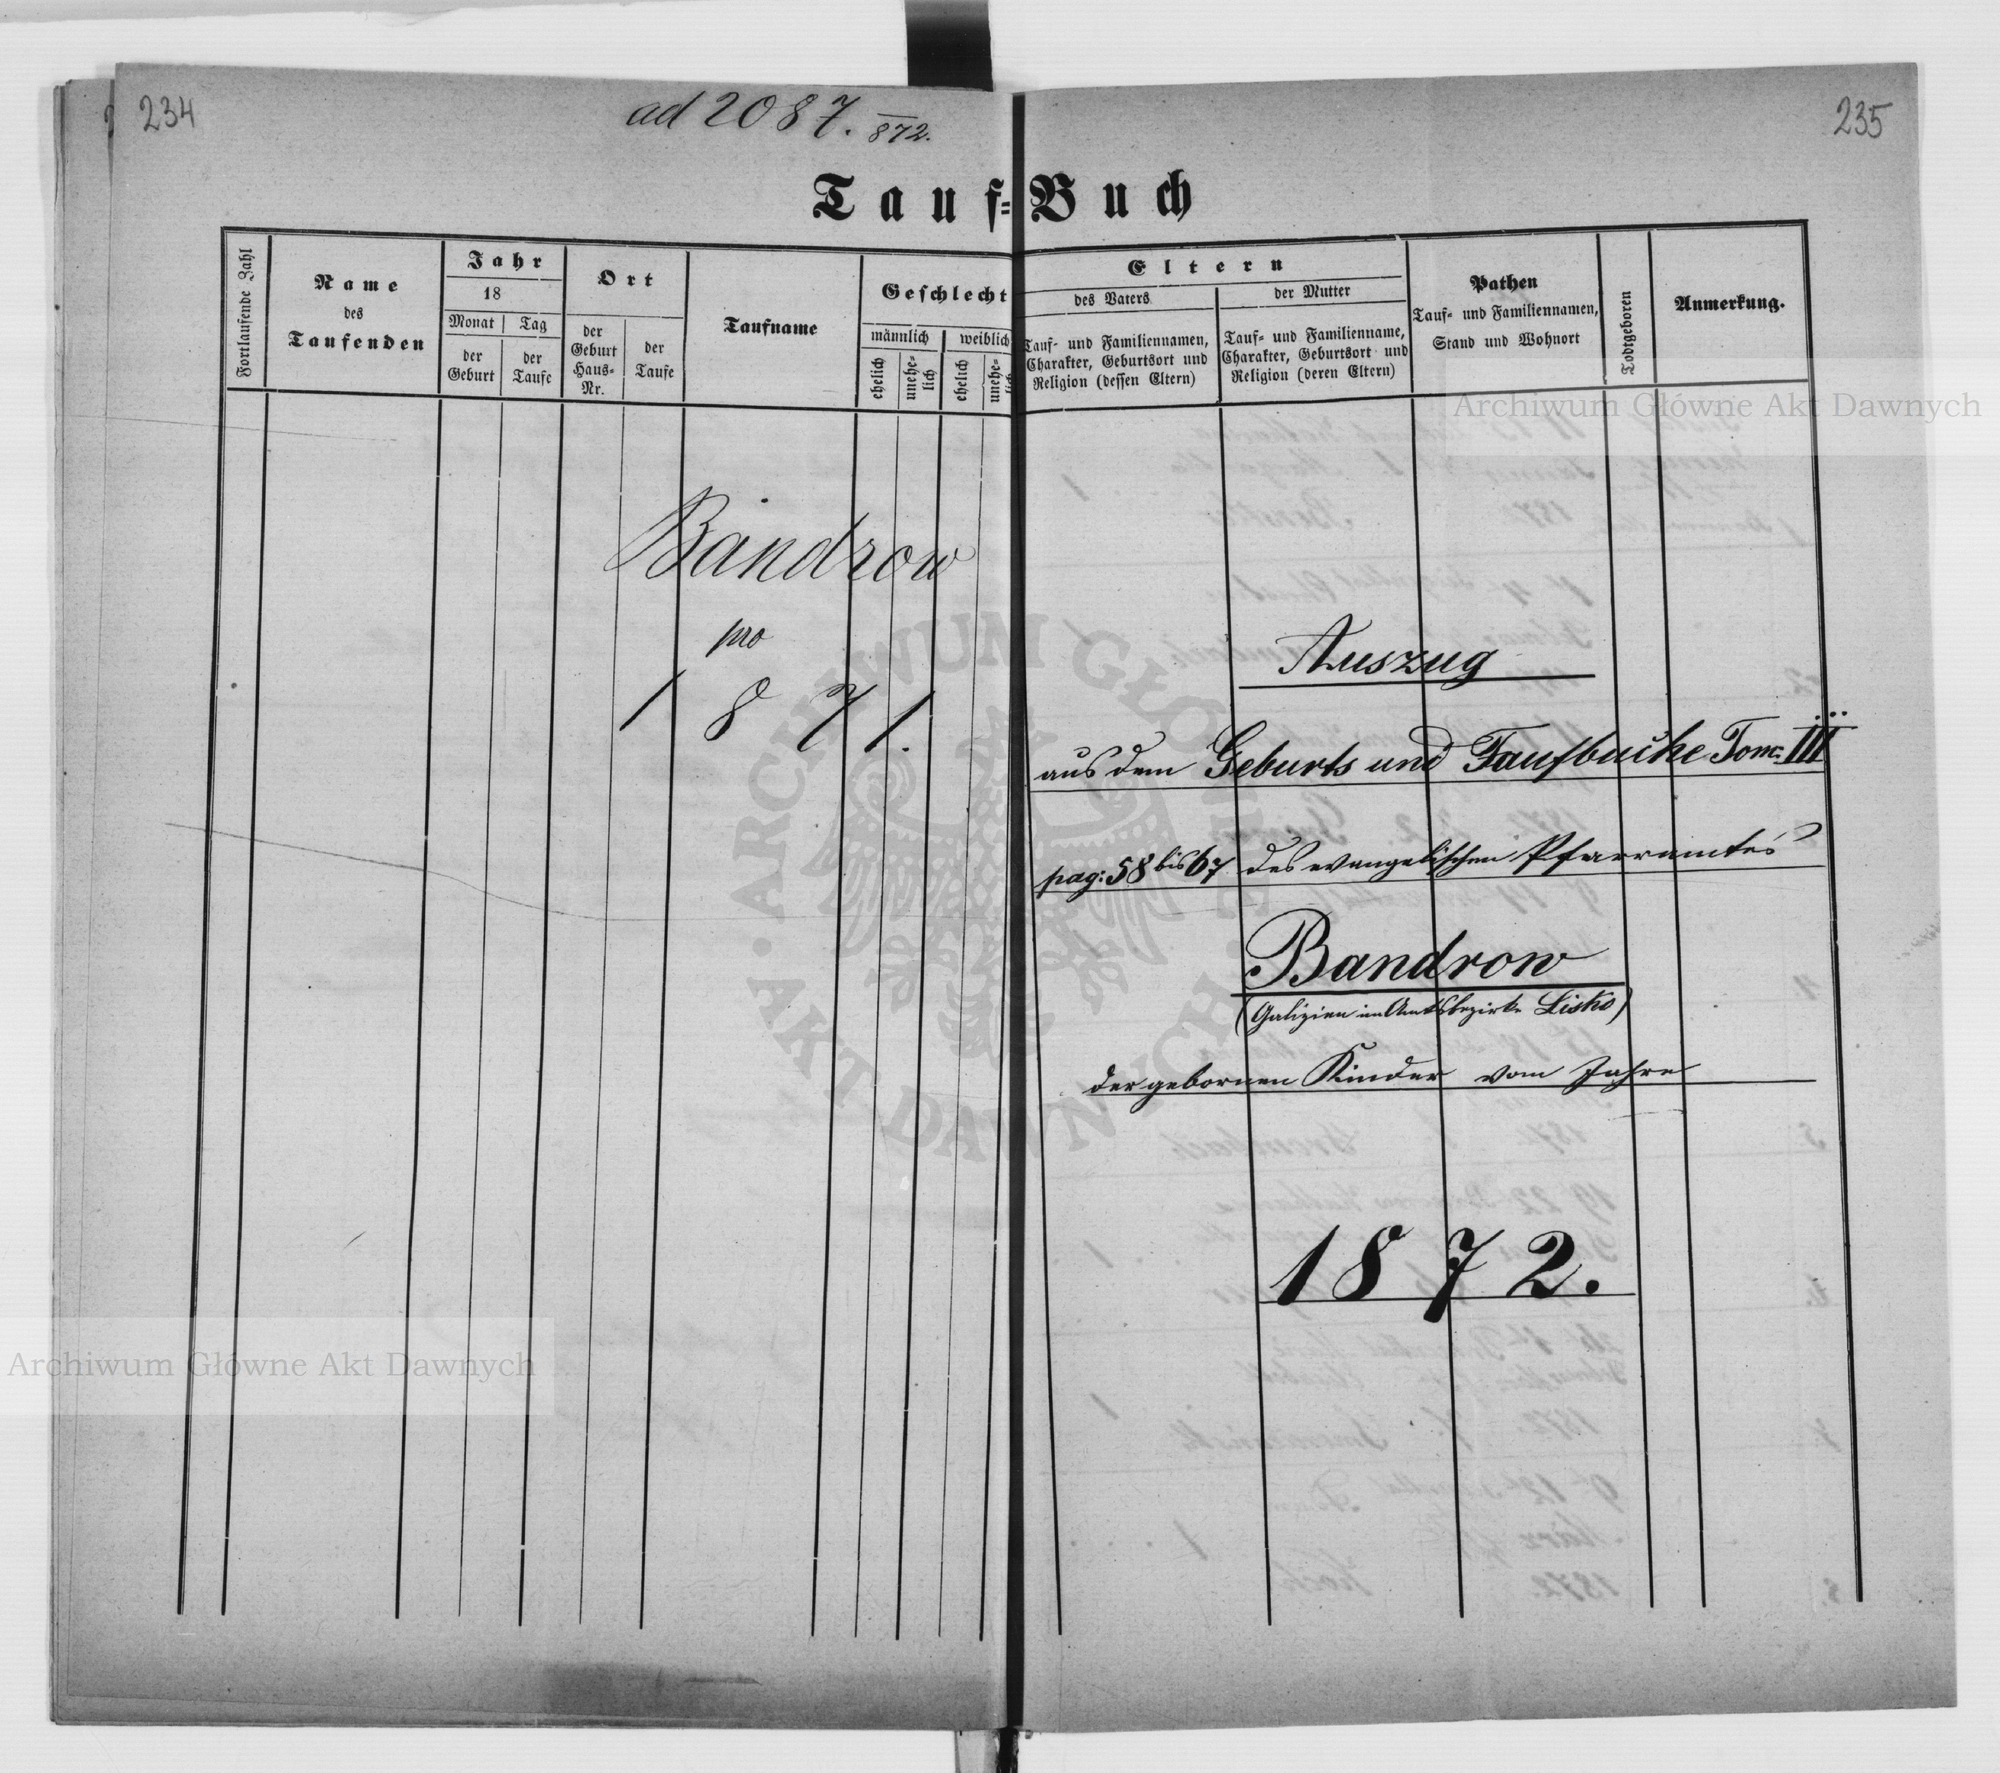 234
ad 2087. /872.
235
Tauf=Buch
Fortlaufende Zahl
Name
des
Taufenden
Jahr
18
Monat
Tag
der
Geburt
der
Taufe
Ort
der
Geburt
Haus=
Nr.
der
Taufe
Taufname
Geschlecht
männlich
weiblich
ehelich
unehe=
lich
ehelich
unehe=
Eltern
des Vaters
Tauf= und Familiennamen,
Charakter, Geburtsort und
Religion (dessen Eltern)
der Mutter
Tauf= und Familienname,
Charakter, Geburtsort und
Religion (deren Eltern)
Pathen
Tauf= und Familiennamen,
Stand und Wohnort
Todtgeboren
Anmerkung.
Bandrow
pro
1871.
Auszug
aus dem Geburts und Taufbuche Tom: III
pag: 58 bis 67 des evangelischen Pfarramtes
Bandrow
(Galizien im Amtsbezirke Lisko)
der gebornen Kinder vom Jahre
1872.
Archiwum Główne Akt Dawnych
Archiwum Główne Akt Dawnych
ARCHIWUM GŁÓWNE AKT DAWNYCH